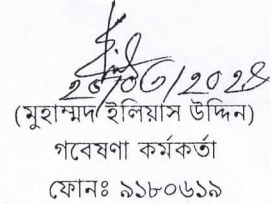 (মুহাম্মদ ইলিয়াস উদ্দিন)
গবেষণা কর্মকর্তা
ফোনঃ ৯১৮০৬১৯